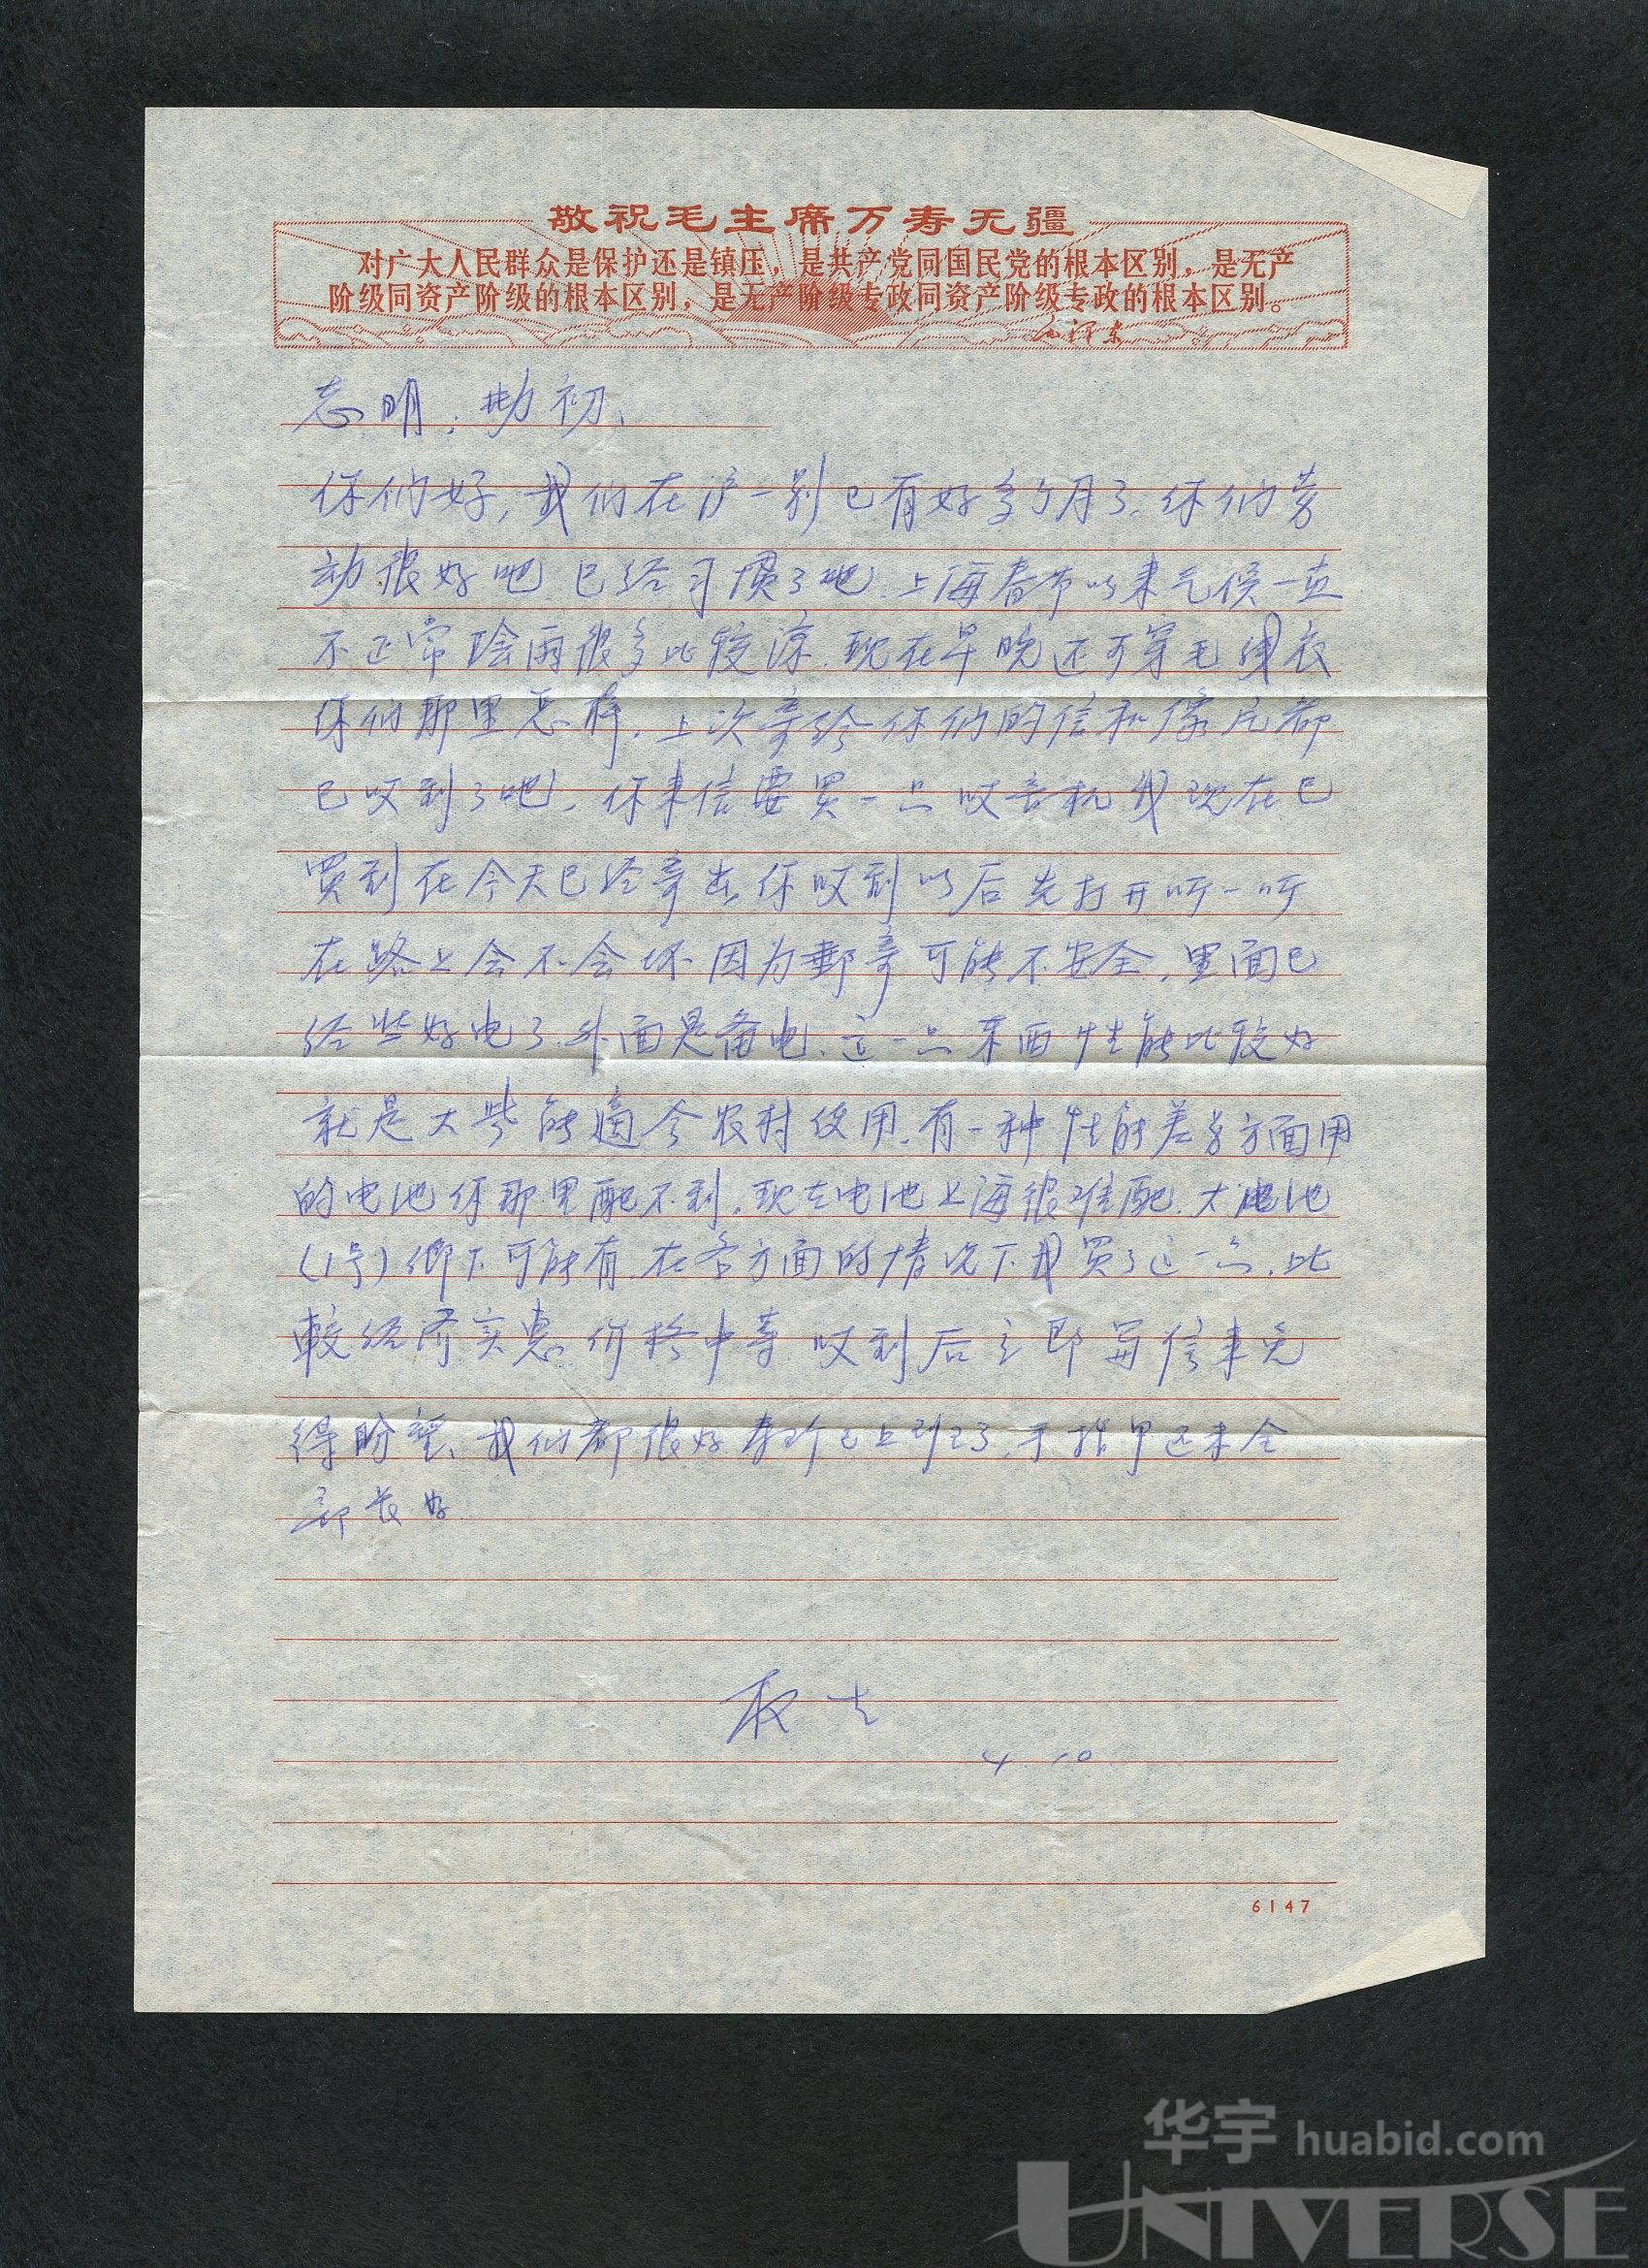 敬祝毛主席万寿无疆
对广大人民群众是保护还是镇压，是共产党同国民党的根本区别，是无产
阶级同资产阶级的根本区别，是无产阶级专政同资产阶级专政的根本区别。
毛泽东
志明、勘初、
你们好，我们在沪一别已有好多个月了、你们劳
动很好吧 已经习惯了吧、上海春节以来气侯一直
不正常陰雨很多比较凉、现在早晚还可穿毛线衣
你们那里怎样、上次寄给你们的信和像片都
已收到了吧、你来信要買一只收音机我现在已
買到在今天已经寄出你收到以后先打开听一听
在路上会不会坏因为郵寄可能不安全、里面已
经 好电了、外面是备电、这一只东西性能比较好
就是大些能适合农村使用、有一种性能差 方面用
的电池你那里配不到、现在电池上海很难配、大电池
（1号）鄉下可能有、在各方面的情况下我買了这一只、比
較经济实惠 价格中等 收到后立即写信来免
得盼望、我们都很好 已上班了、手指甲还未全
部长好
4.10
6147
华宇 huabid.com
UNIVERSE